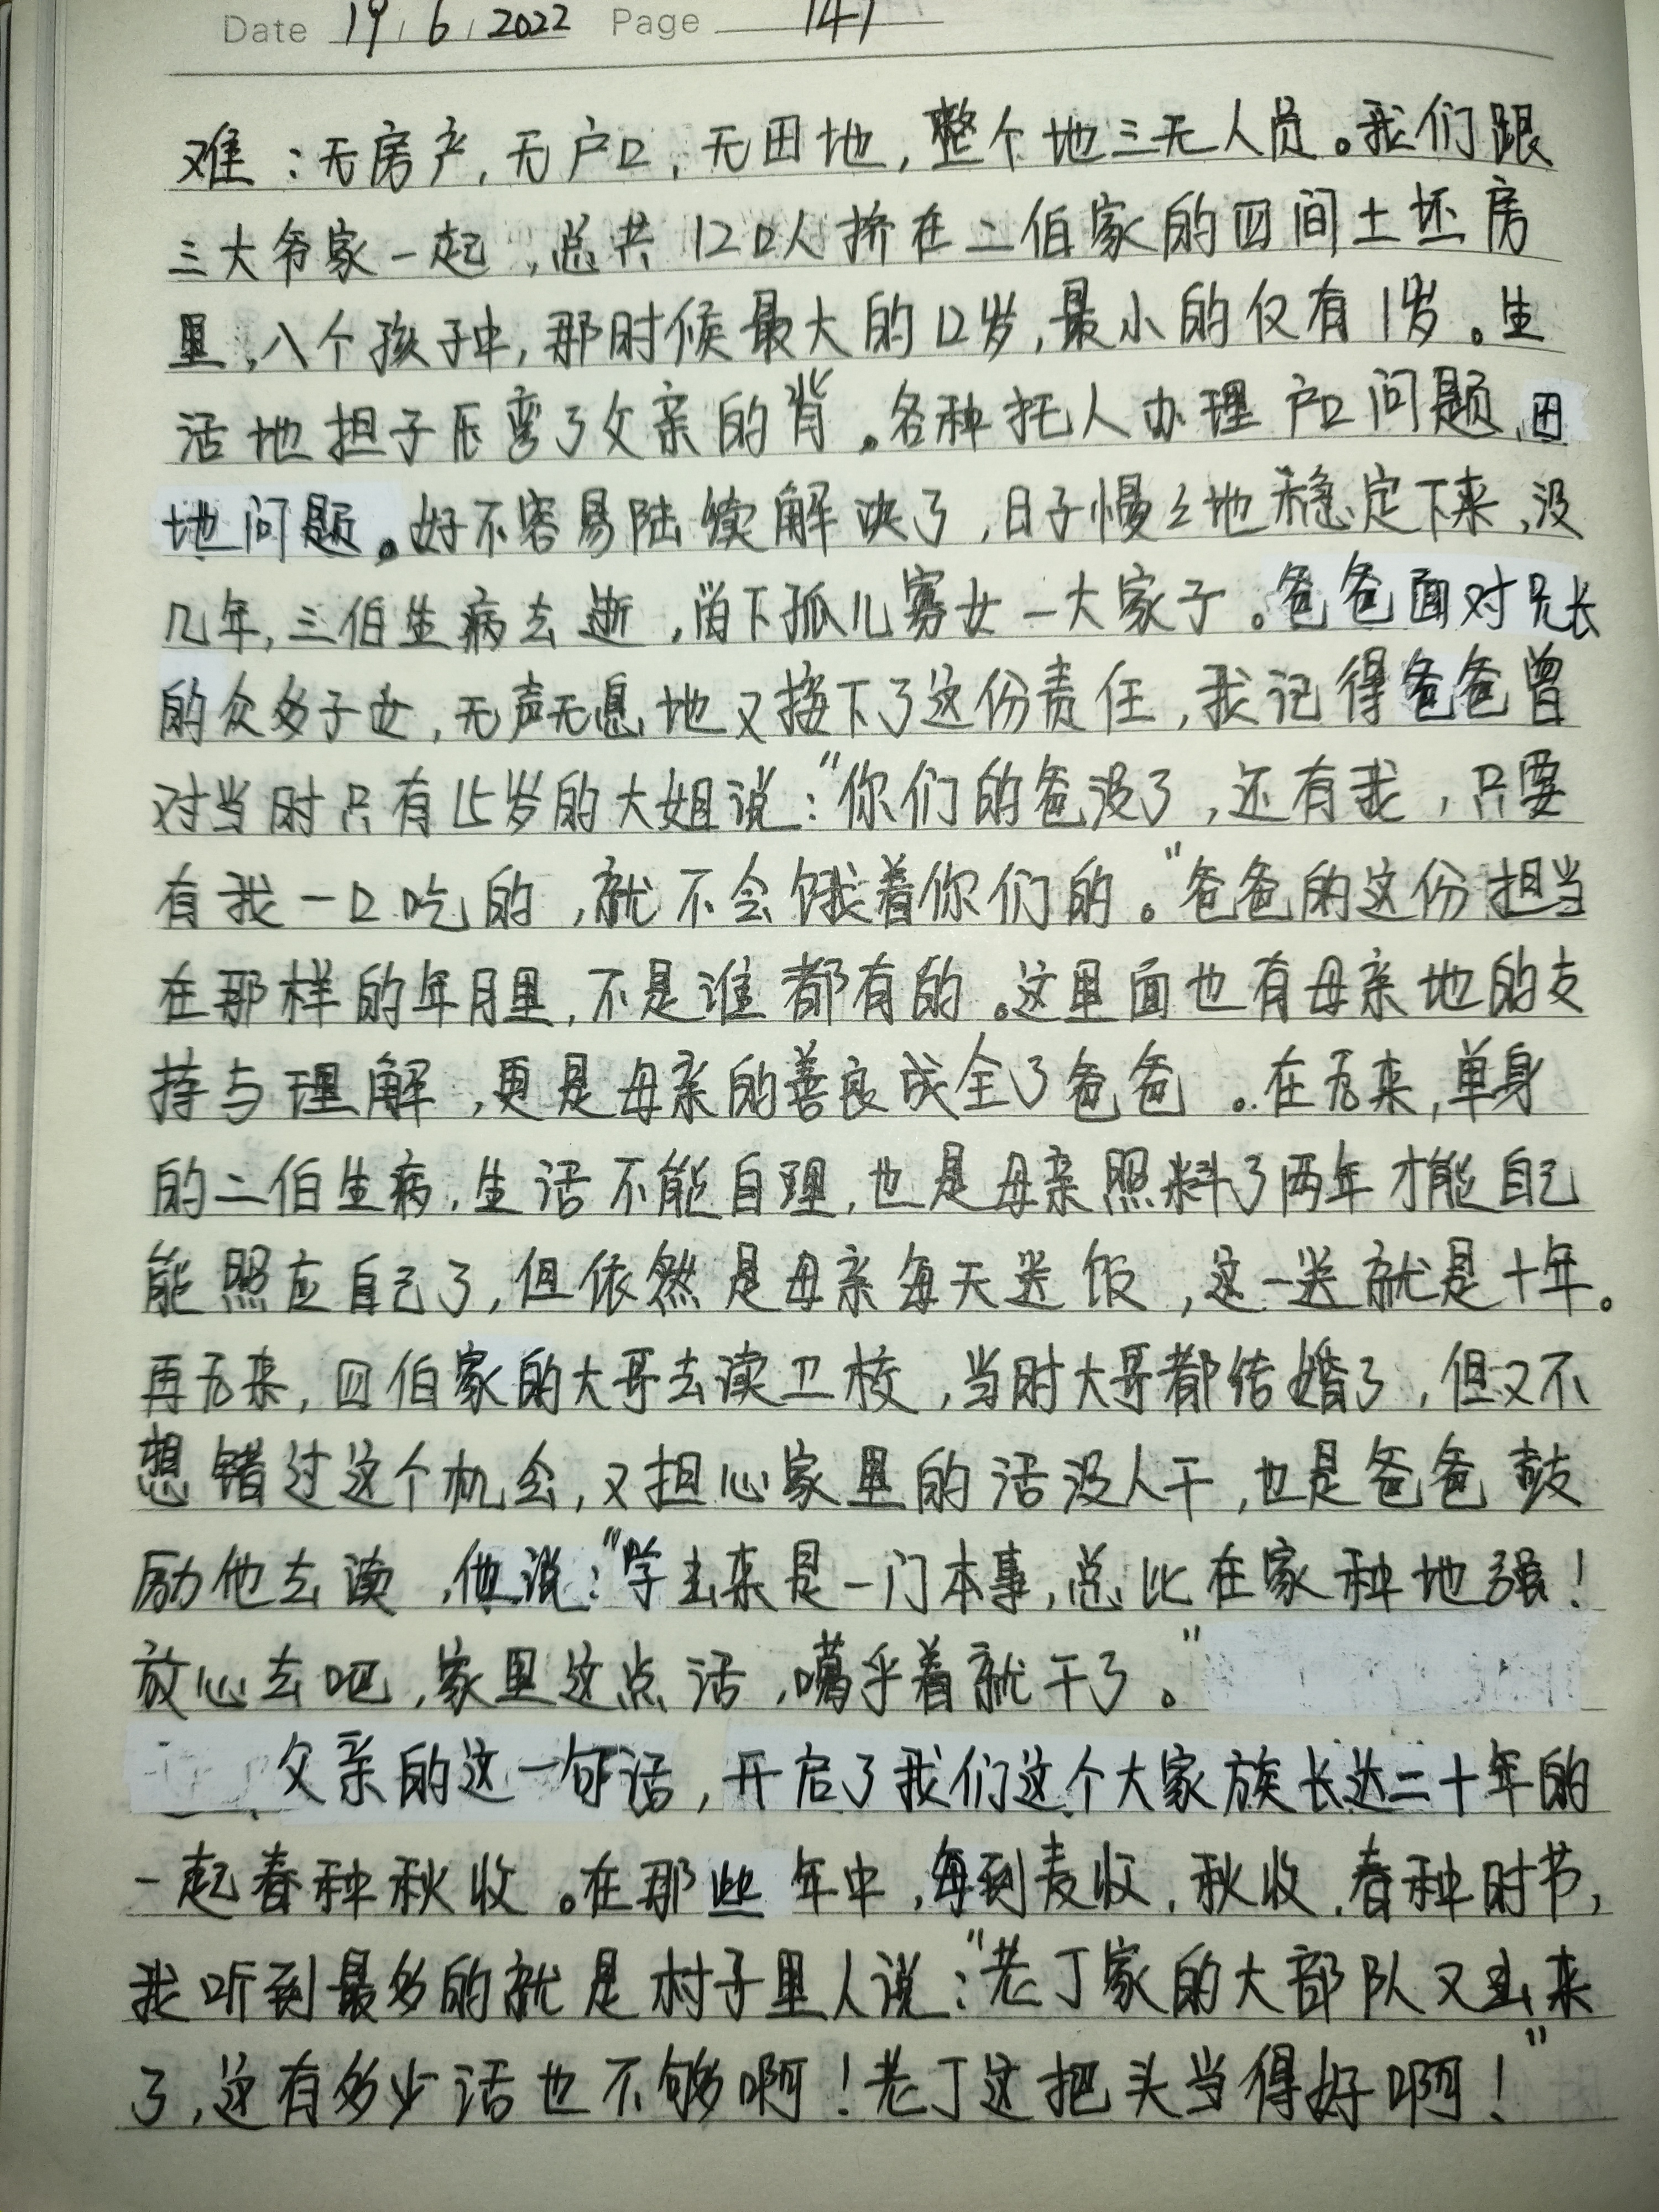 Date 19 / 6 / 2022 Page 147
难：无房产，无户口，无田地，整个地三无人员。我们跟
三大爷家一起，总共12口人挤在二伯家的四间土坯房
里，八个孩子中，那时候最大的12岁，最小的仅有1岁。生
活地担子压弯了父亲的背。各种托人办理户口问题、田
地问题。好不容易陆续解决了，日子慢々地稳定下来，没
几年，三伯生病去逝，留下孤儿寡女一大家子。爸爸面对兄长
的众多子女，无声无息地又接下了这份责任，我记得爸爸曾
对当时只有15岁的大姐说：“你们的爸没了，还有我，只要
有我一口吃的，就不会饿着你们的。”爸爸的这份担当
在那样的年月里，不是谁都有的。这里面也有母亲地的支
持与理解，更是母亲的善良成全了爸爸。在后来，单身
的二伯生病，生活不能自理，也是母亲照料了两年才能自己
能照应自己了，但依然是母亲每天送饭，这一送就是十年。
再后来，四伯家的大哥去读卫校，当时大哥都结婚了，但又不
想错过这个机会，又担心家里的活没人干，也是爸爸鼓
励他去读，他说：“学出来是一门本事，总比在家种地强！
放心去吧，家里这点活，嘱乎着就干了。”
父亲的这一句话，开启了我们这个大家族长达二十年的
一起春种秋收。在那些年中，每到麦收，秋收，春种时节，
我听到最多的就是村子里人说：“老丁家的大部队又出来
了，这有多少活也不够啊！老丁这把头当得好啊！”